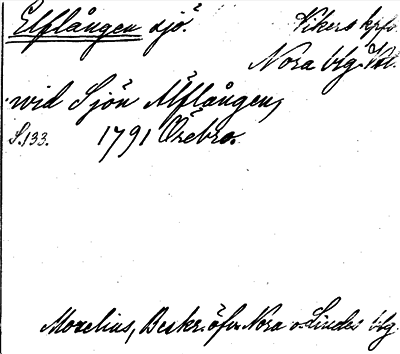 Elflången sjö. Vikers kpfs.
Nora blg. Vstl.
wid Sjön Älflången,
S.133. 1791 Örebro.
Morelius, Beskr. öfv. Nora o. Lindes blg.